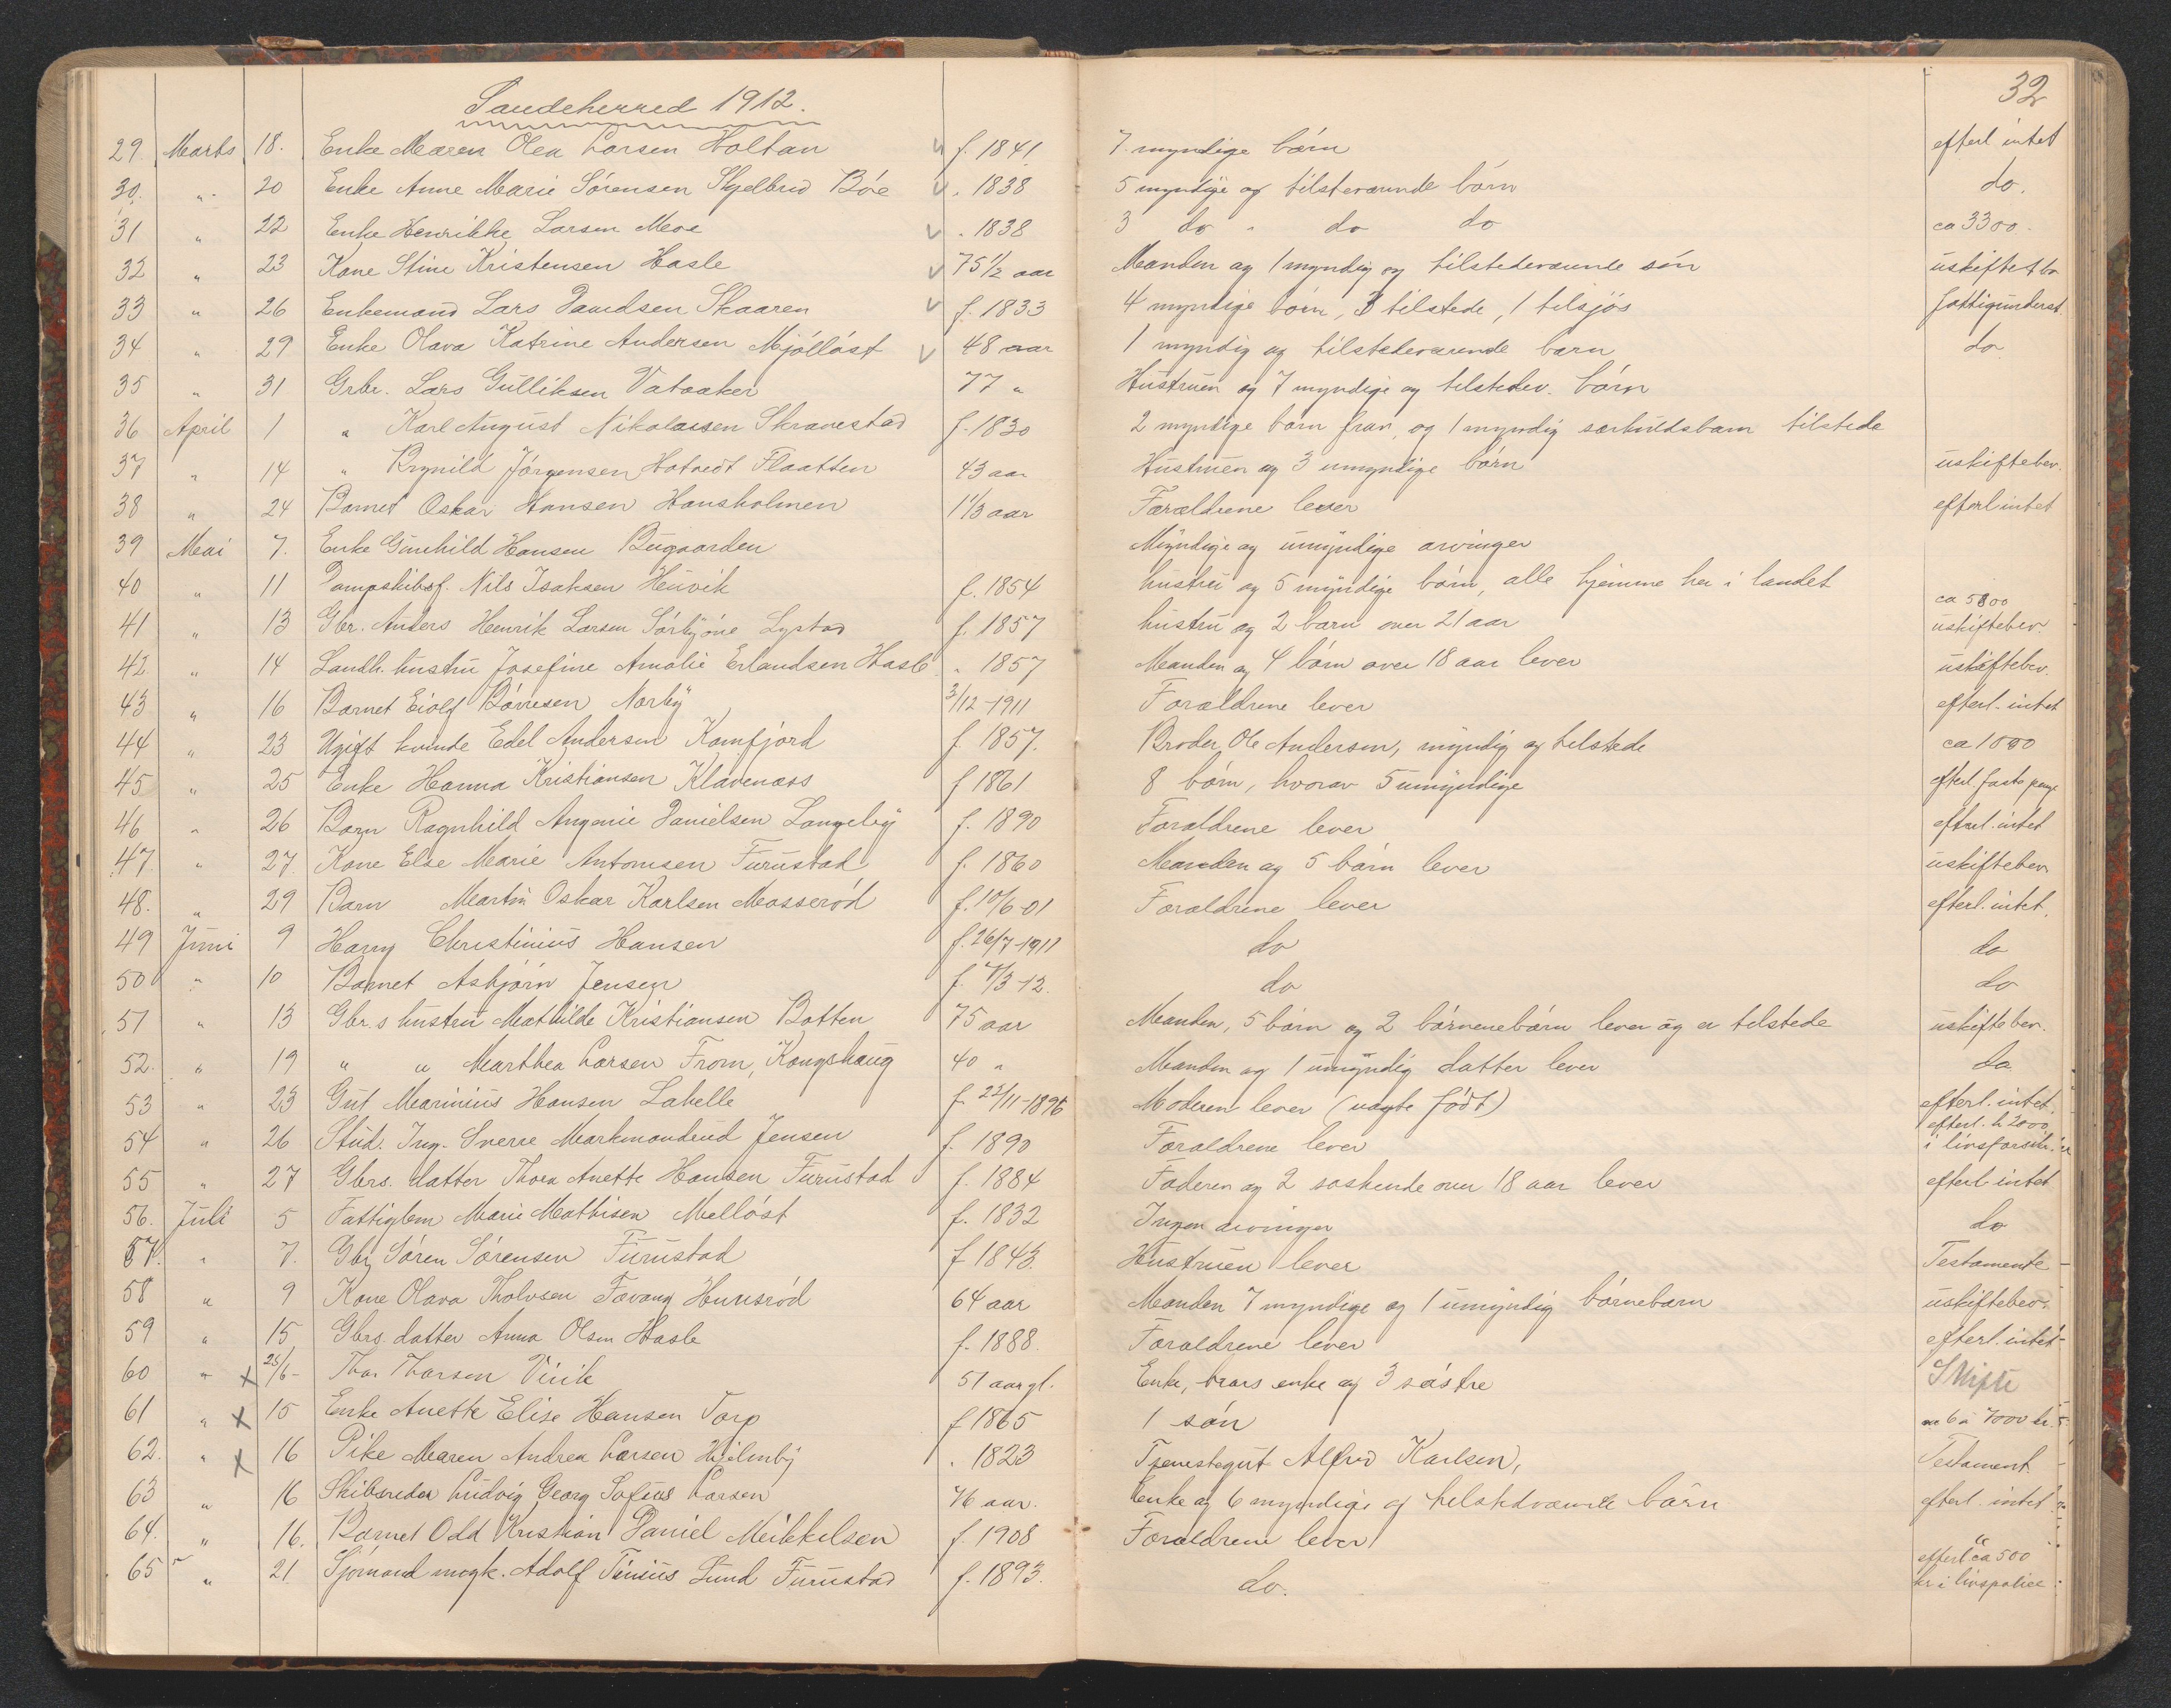 32
Sandeherred 1912.
29 Marts 18. Enke Maren Olea Larsen Holtan f. 1841 7 myndige børn efterl intet
30. " 20 Enke Anne Marie Sørensen Skjelbred Bøe " 1838 5 myndige og tilsteværende børn do.
31 " 22 Enke Henrikke Larsen Moe " 1838 3 do " do do ca 3300.
32 " 23 Kone Stine Kristensen Hasle 75 1/2 aar Manden og 1 myndig og tilstedeværende søn uskiftet bo
33 " 26 Enkemand Lars Davidsen Skaaren f. 1833 4 myndige børn, 3 tilstede, 1 tilsjøs fattigunderst.
34 " 29 Enke Olava Katrine Andersen Mjølløst 48 aar 1 myndig og tilstedeværende barn do
35 " 31 Grbr. Lars Gulliksen Vataaker 77 " Hustruen og 7 myndige og tilstedev. børn
36 April 1 " Karl August Nikolaisen Skravestad f. 1830 2 myndige børn frav. og 1 myndig særkuldsbarn tilstede
37 " 14 " Brynild Jørgensen Hotvedt Flaatten 43 aar Hustruen og 3 umyndige børn uskiftebev.
38 " 24 Barnet Oskar Hansen Hausholmen 1 1/3 aar Forældrene lever efterl intet
39 Mai 7. Enke Gunhild Hansen Bugaarden Myndige og umyndige arvinger
40 " 11 Dampskibsf. Nils Isaksen Heuvik f. 1854 hustru og 5 myndige børn, alle hjemme her i landet
41 " 13 Gbr. Anders Henrik Larsen Sørbyøne Lystad f. 1857 hustru og 2 barn over 21 aar ca 5800 uskiftebev.
42 " 14 Landh. hustru Josefine Amalie Erlandsen Hasle " 1857 Manden og 4 børn over 18 aar lever uskiftebev.
43 " 16 Barnet Eiolf Børresen Norby 3/12-1911 Forældrene lever efterl. intet
44 " 23 Ugift kvinde Edel Andersen Kamfjord f. 1857. Broder Ole Andersen, myndig og tilstede ca 1000
45 " 25 Enke Hanna Kristiansen Klavenæss f 1861 8 børn, hvorav 5 umyndige
46 " 26 Barn Ragnhild Angenie Danielsen Langeby f. 1890 Forældrene lever efterl. intet
47 " 27. Kone Else Marie Antonisen Furustad f. 1860 Manden og 5 børn lever uskiftebev.
48. " 29 Barn Martin Oskar Karlsen Mosserød f. 10/6-01 Forældrene lever efterl. intet.
49 Juni 9 Harry Christinius Hansen f. 26/7-1911 do do
50 " 10 Barnet Asbjørn Jensen f. 4/3-12. do do
51 " 13 Gbr.s hustru Mathilde Kristiansen Botten 75 aar Manden, 5 børn og 2 børnenebørn lever og er tilstede uskiftebev.
52. " 19 " " Marthea Larsen From, Kongshaug 40 " Manden og 1 umyndig datter lever do
53 " 23 Gut Marinius Hansen Labelle f. 22/11-1896 Moderen lever (uægte født) efterl. intet.
54 " 26 Stud. Ing. Sverre Markmanrud Jensen f. 1890 Forældrene lever efterl. k 2000 i livsforsikr.
55 " 27 Gbrs. datter Thora Anette Hansen Furustad f. 1884 Faderen og 2 søskende over 18 aar lever efterl intet
56. Juli 5 Fattiglem Marie Mathisen Melløst f. 1832 Ingen arvinger do
57. " 7. Gbr Søren Sørensen Furustad f 1843. Hustruen lever Testamente
58 " 9 Kone Olava Tholvsen Favang Hunsrød 64 aar Manden 7 myndige og 1 umyndig børnebarn uskiftebev.
59 " 15 Gbrs. datter Anna Olsen Hasle f. 1888. Forældrene lever efterl. intet
60 " x 25/6- Thor Thorsen Virik 51 aar gl. Enke, brors enke og 3 søstre Skifte
61 " x 15 Enke Anette Elise Hansen Torp f 1865 1 søn ca 6 à 7000 kr.
62. " x 16 Pike Maren Andrea Larsen Hjelmby " 1823 Tjenestegut Alfred Karlsen, Testament
63 " 16 Skibsreder Ludvig Georg Sofus Larsen 46 aar. Enke og 6 myndige og tilstedværende børn efterl. intet
64. " 16. Barnet Odd Kristian Daniel Meikkelsen f. 1908 Forældrene lever "
65 " 21 Sjømand ungk. Adolf Tinius Lund Furustad f. 1893. do. efterl ca 500 kr i livspolice